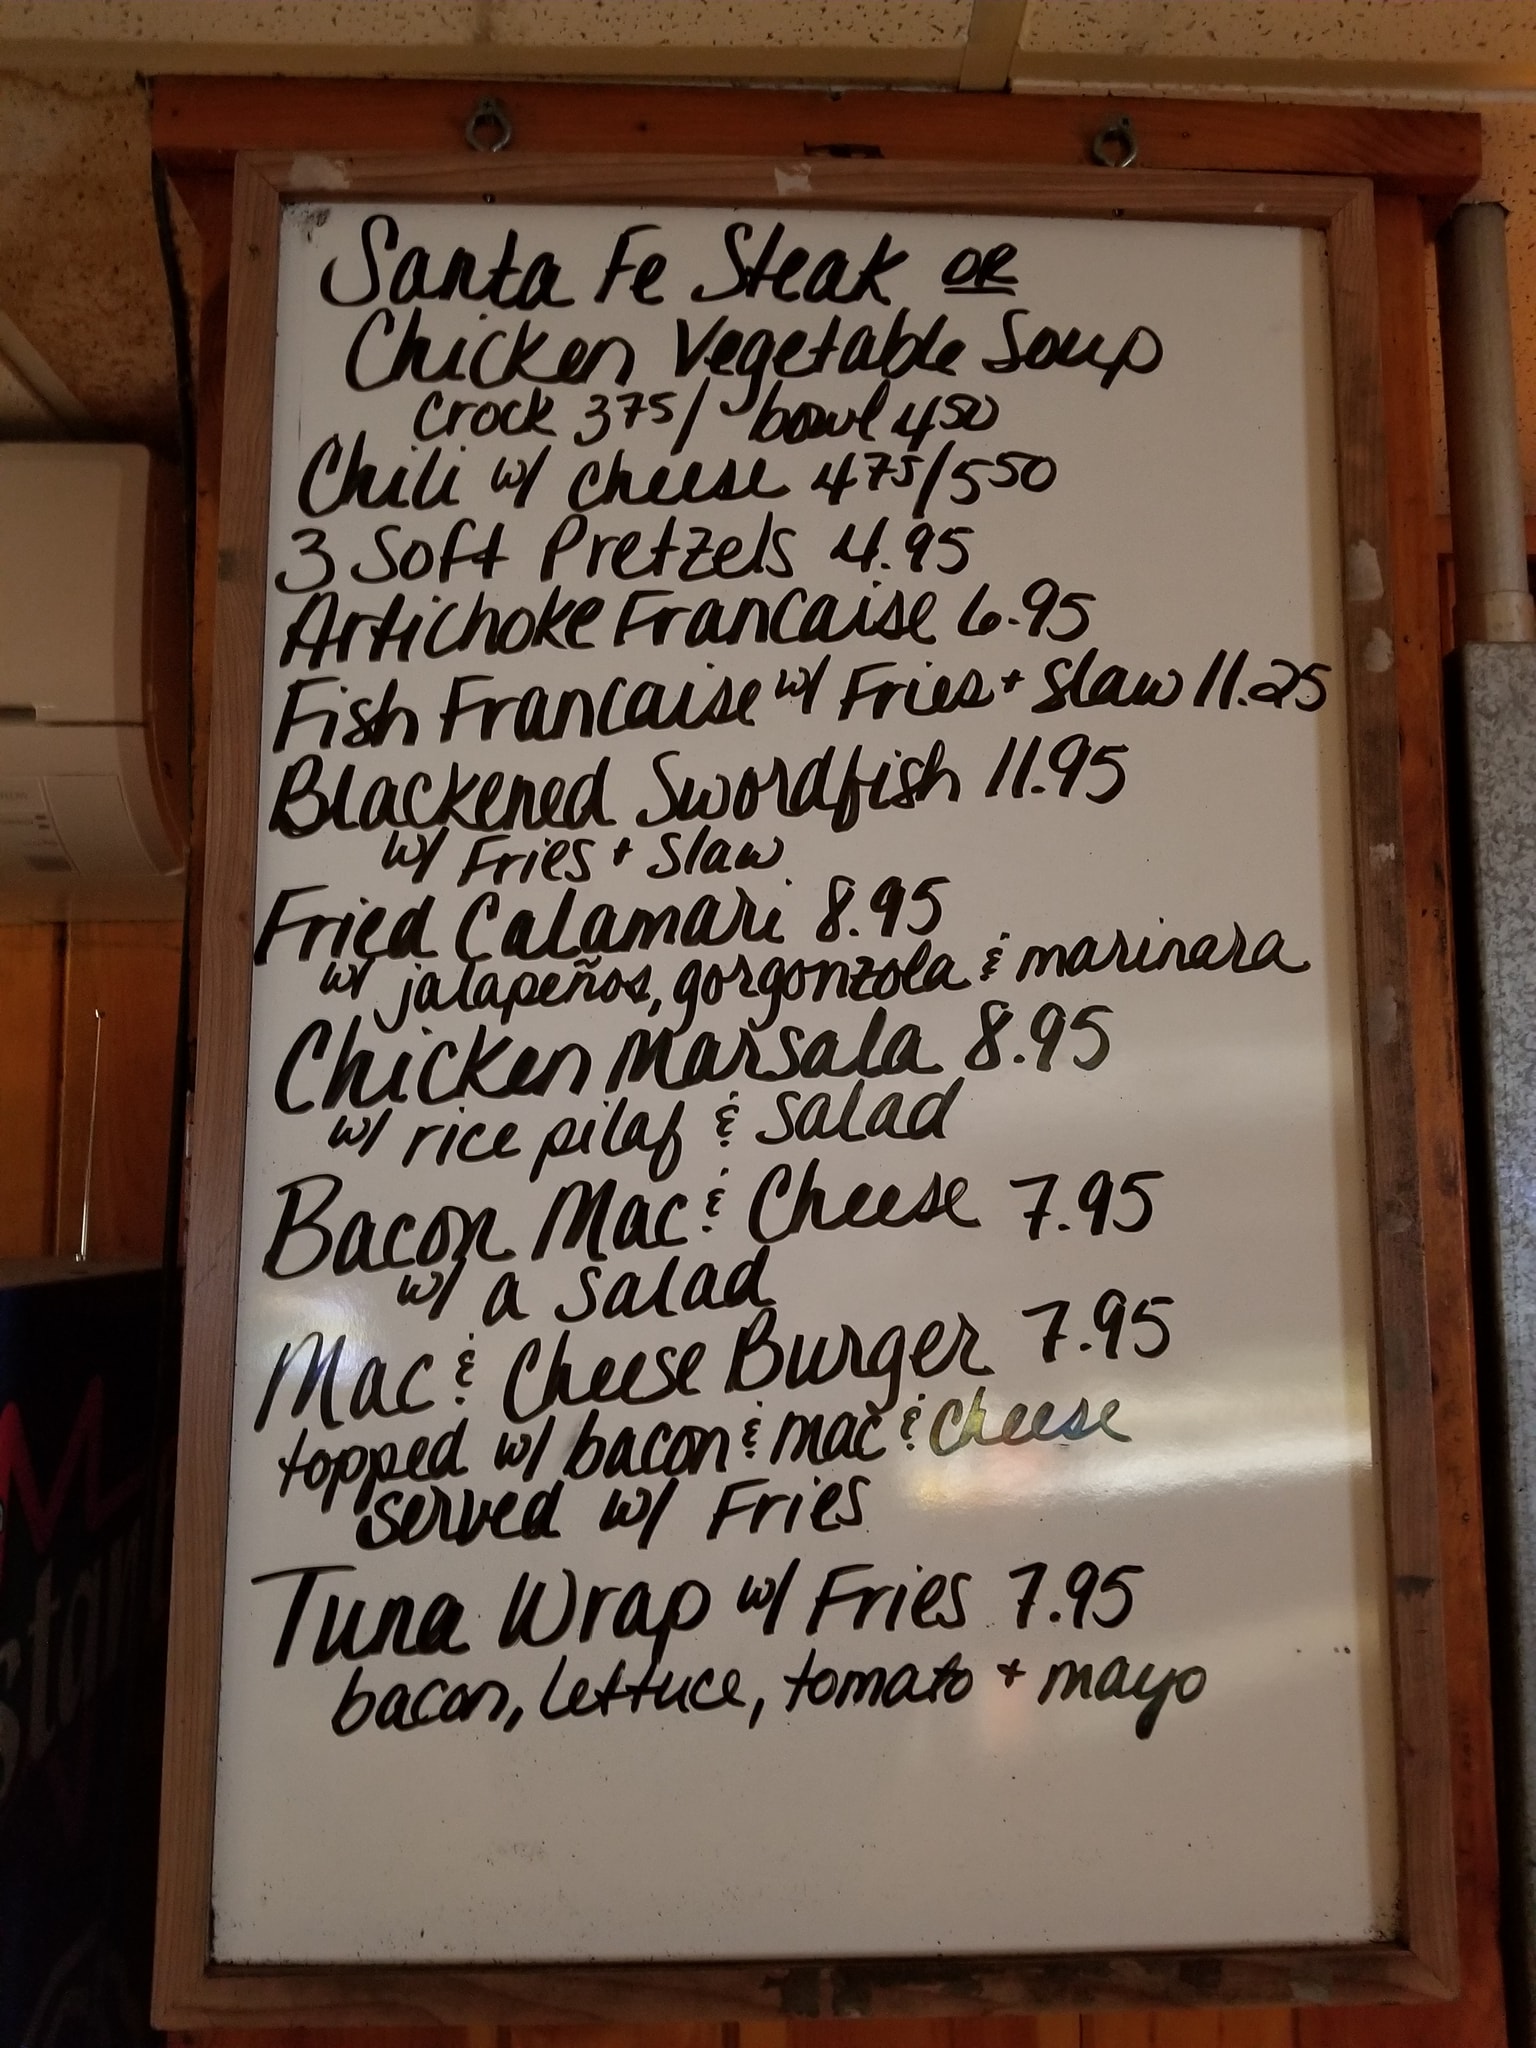 Santa Fe Steak OR
Chicken Vegetable Soup
crock 375/ bowl 450
Chili w/ cheese 475/550
3 Soft Pretzels 4.95
Artichoke Francaise 6.95
Fish Francaise w/ Fries + Slaw 11.25
Blackened Swordfish 11.95
w/ Fries + Slaw
Fried Calamari 8.95
w/ jalapeños, gorgonzola & marinara
Chicken Marsala 8.95
w/ rice pilaf & salad
Bacon Mac & Cheese 7.95
w/ a salad
Mac & Cheese Burger 7.95
topped w/ bacon & mac & cheese
served w/ Fries
Tuna Wrap w/ Fries 7.95
bacon, lettuce, tomato + mayo